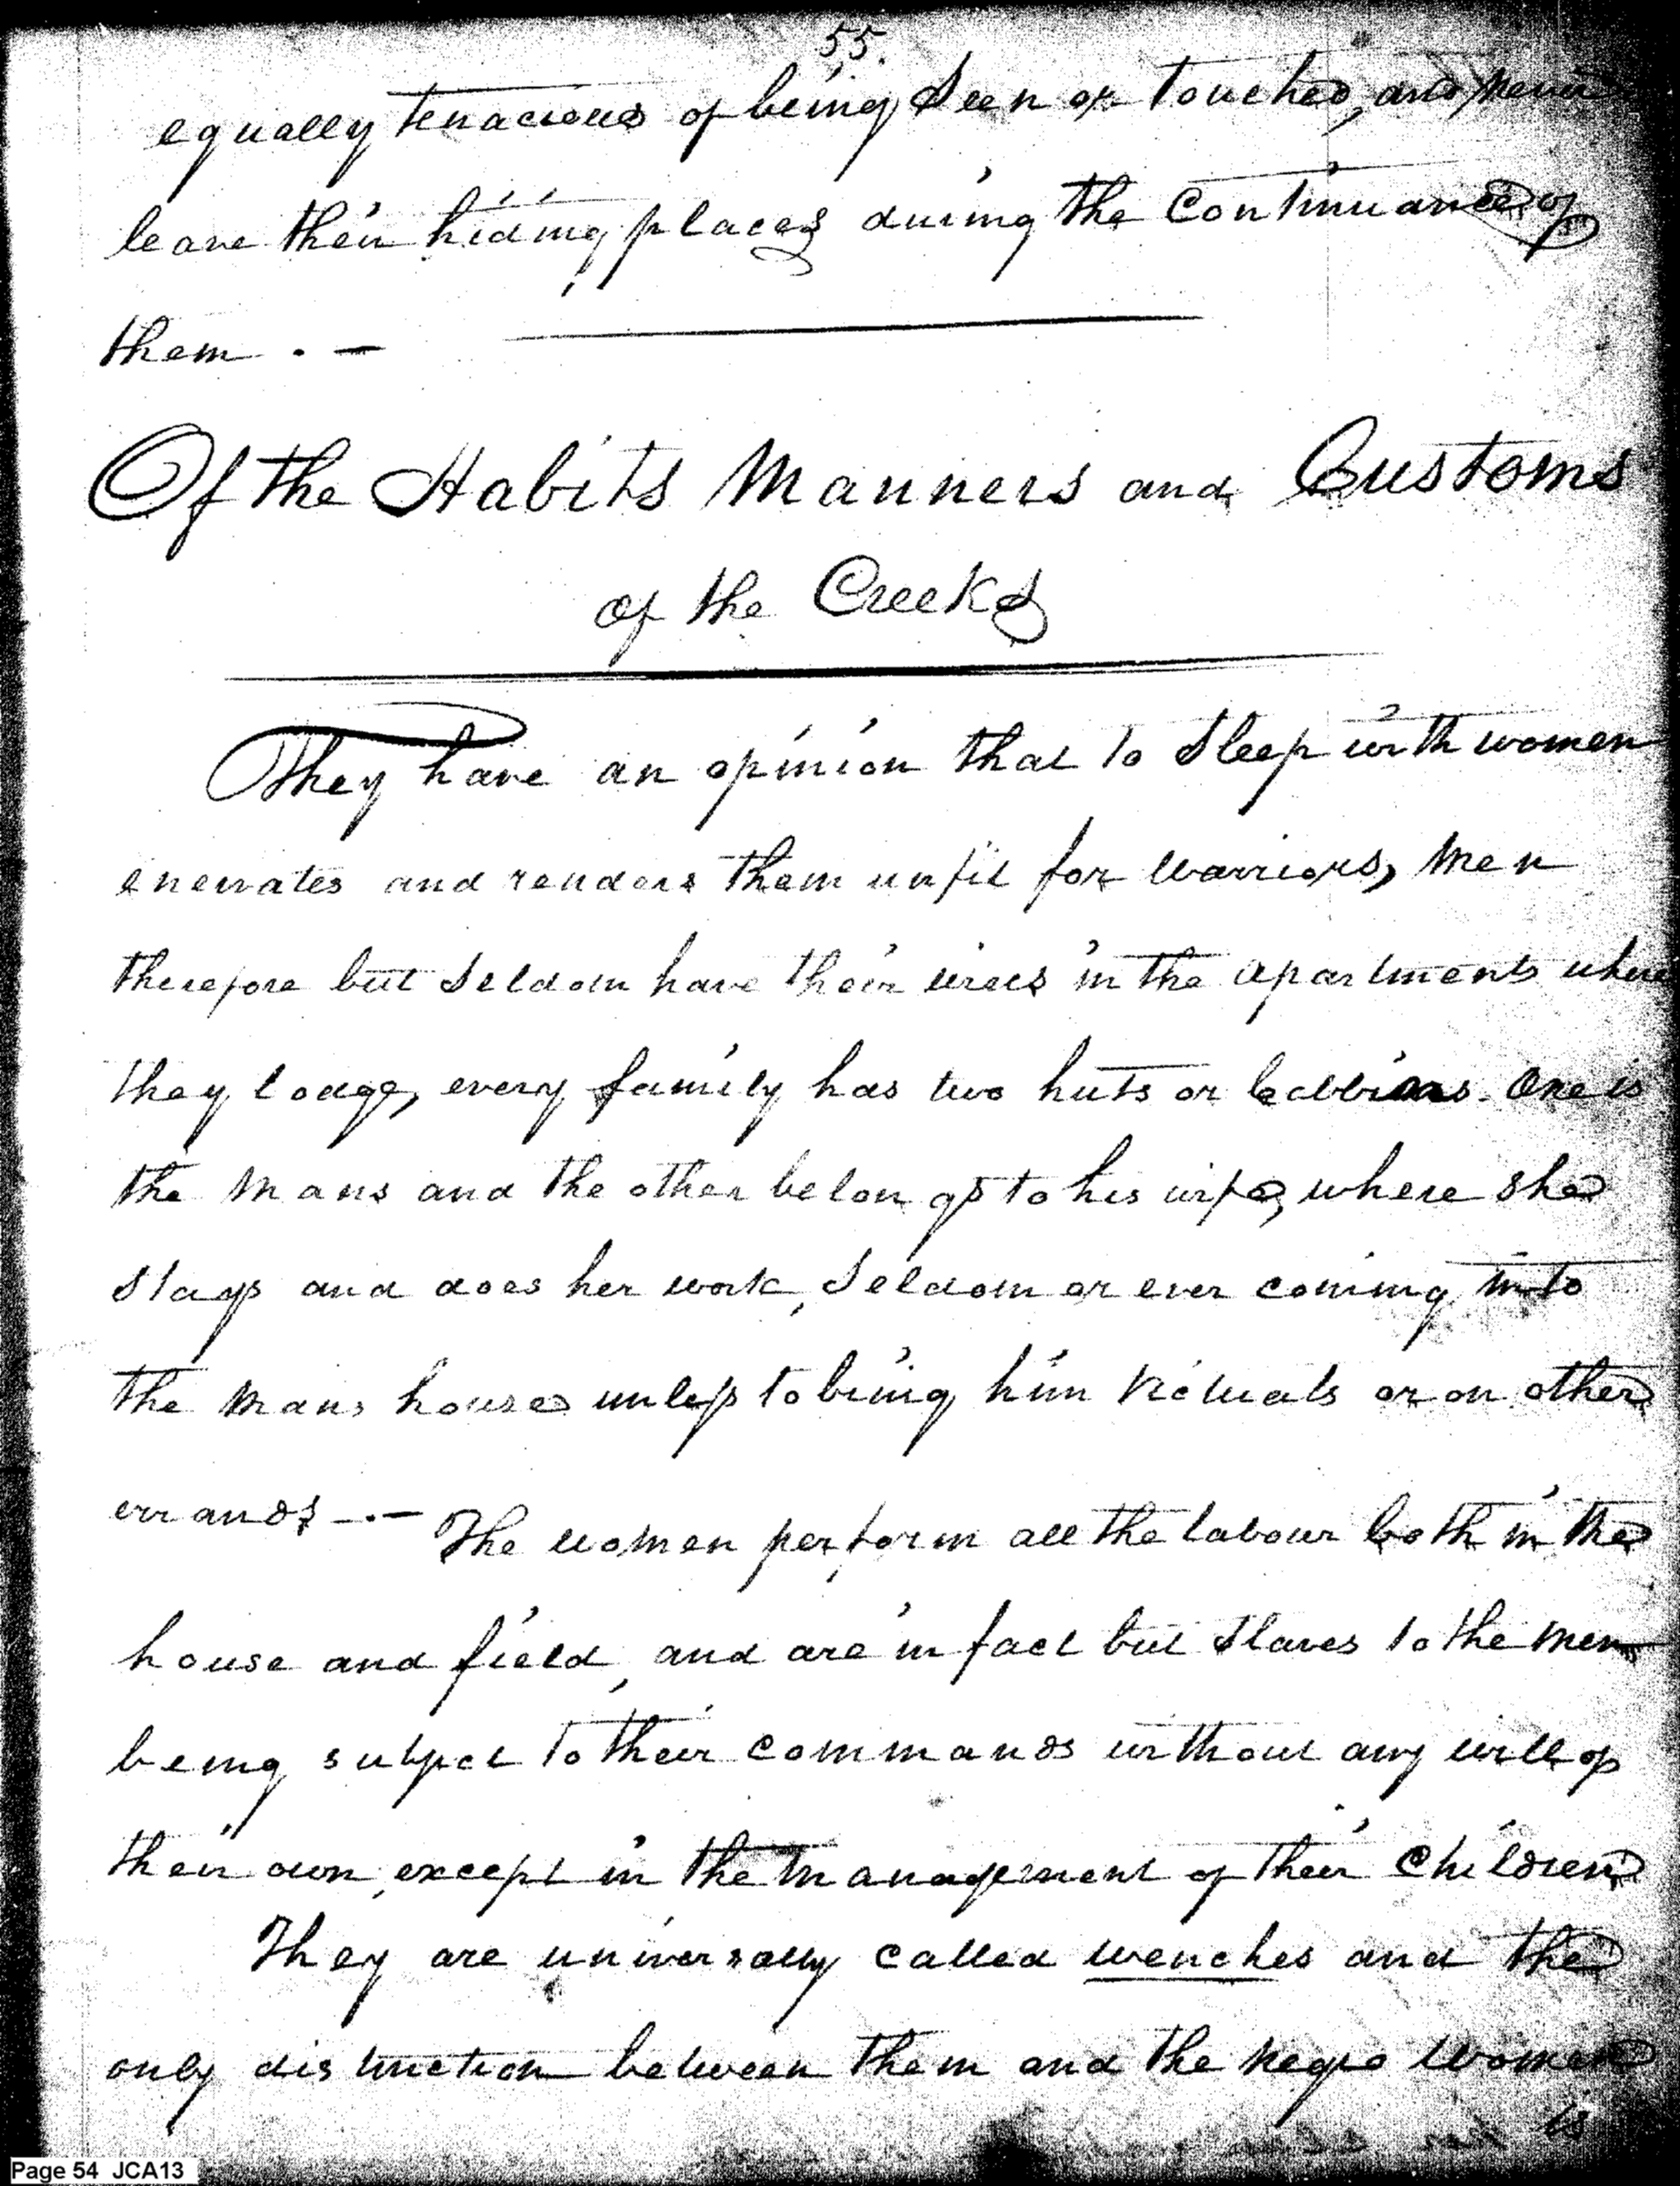 55.
equally tenacious of being Seen or touched, and never
leave their hiding places during the Continuance of
them . —
Of the Habits Manners and Customs
of the Creeks
They have an opinion that to Sleep with women
enervates and renders them unfit for warriors, Men
therefore but Seldom have their wives in the apartments where
they lodge, every family has two huts or Cabbins. One is
the Mans and the other belongs to his wife, where she
Stays and does her work, Seldom or ever coming into
the Mans house unless to bring him Victuals or on other
errands —.— The women perform all the labour both in the
house and field, and are in fact but Slaves to the men
being subject to their commands without any will of
their own, except in the Management of their Children
They are universally called wenches and the
only distinction between them and the negro women
is
Page 54 JCA13